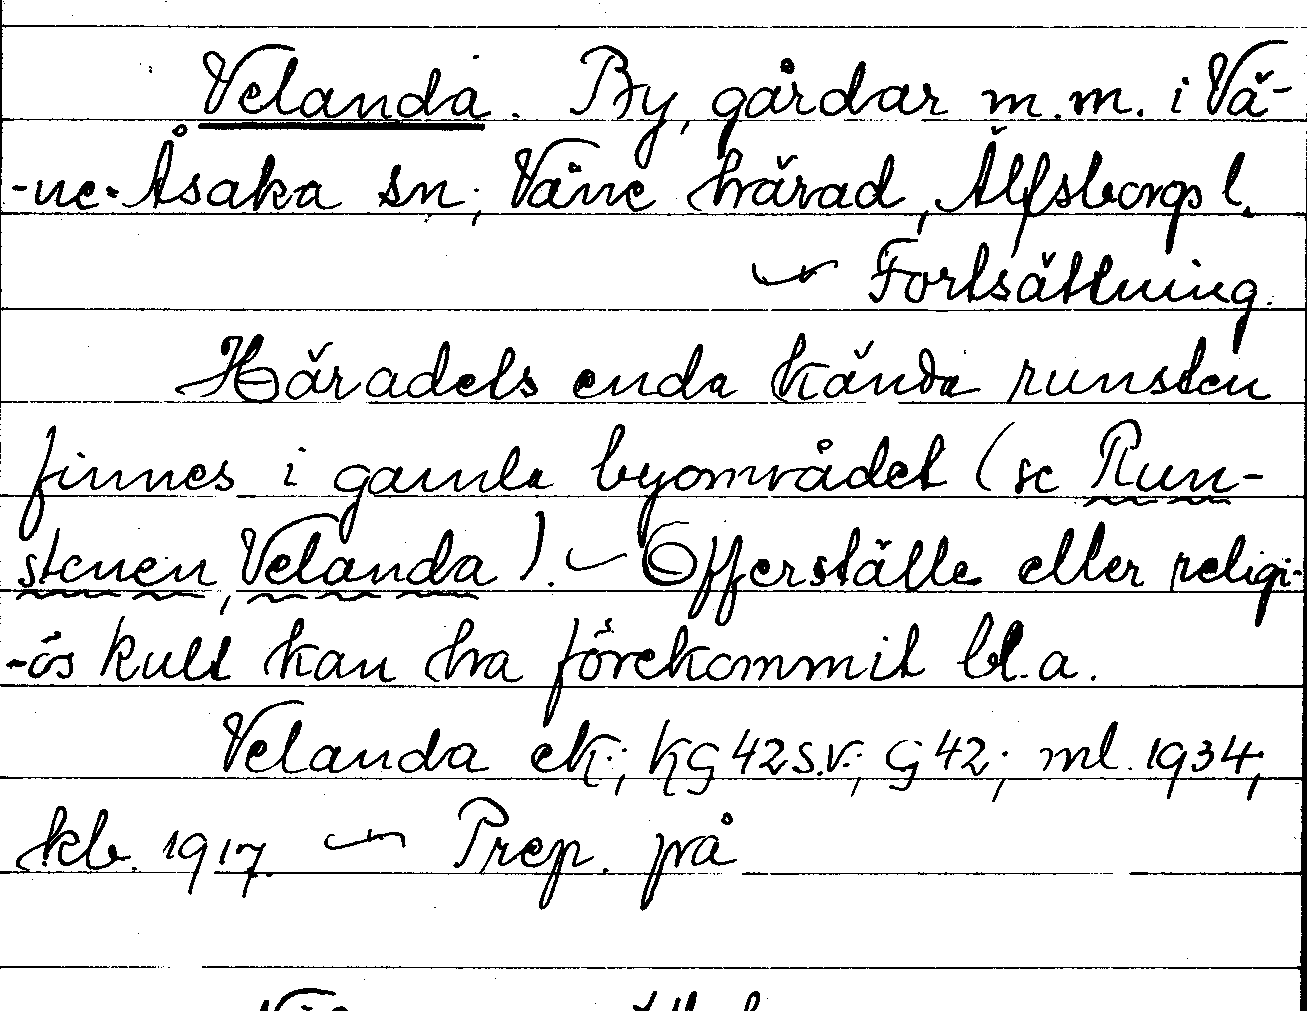 Velanda. By, gårdar m.m. i Vä-
-ne-Åsaka sn; Väne härad, Älfsborgs l.
~ Fortsättning.
Häradets enda kända runsten
finnes i gamla byområdet (se Run-
stenen, Velanda). ~ Offerställe eller religi-
-ös kult kan ha förekommit bl.a.
Velanda ek.; kG 42 s.v.; G 42; ml. 1934,
kb. 1917. ~ Prep. på